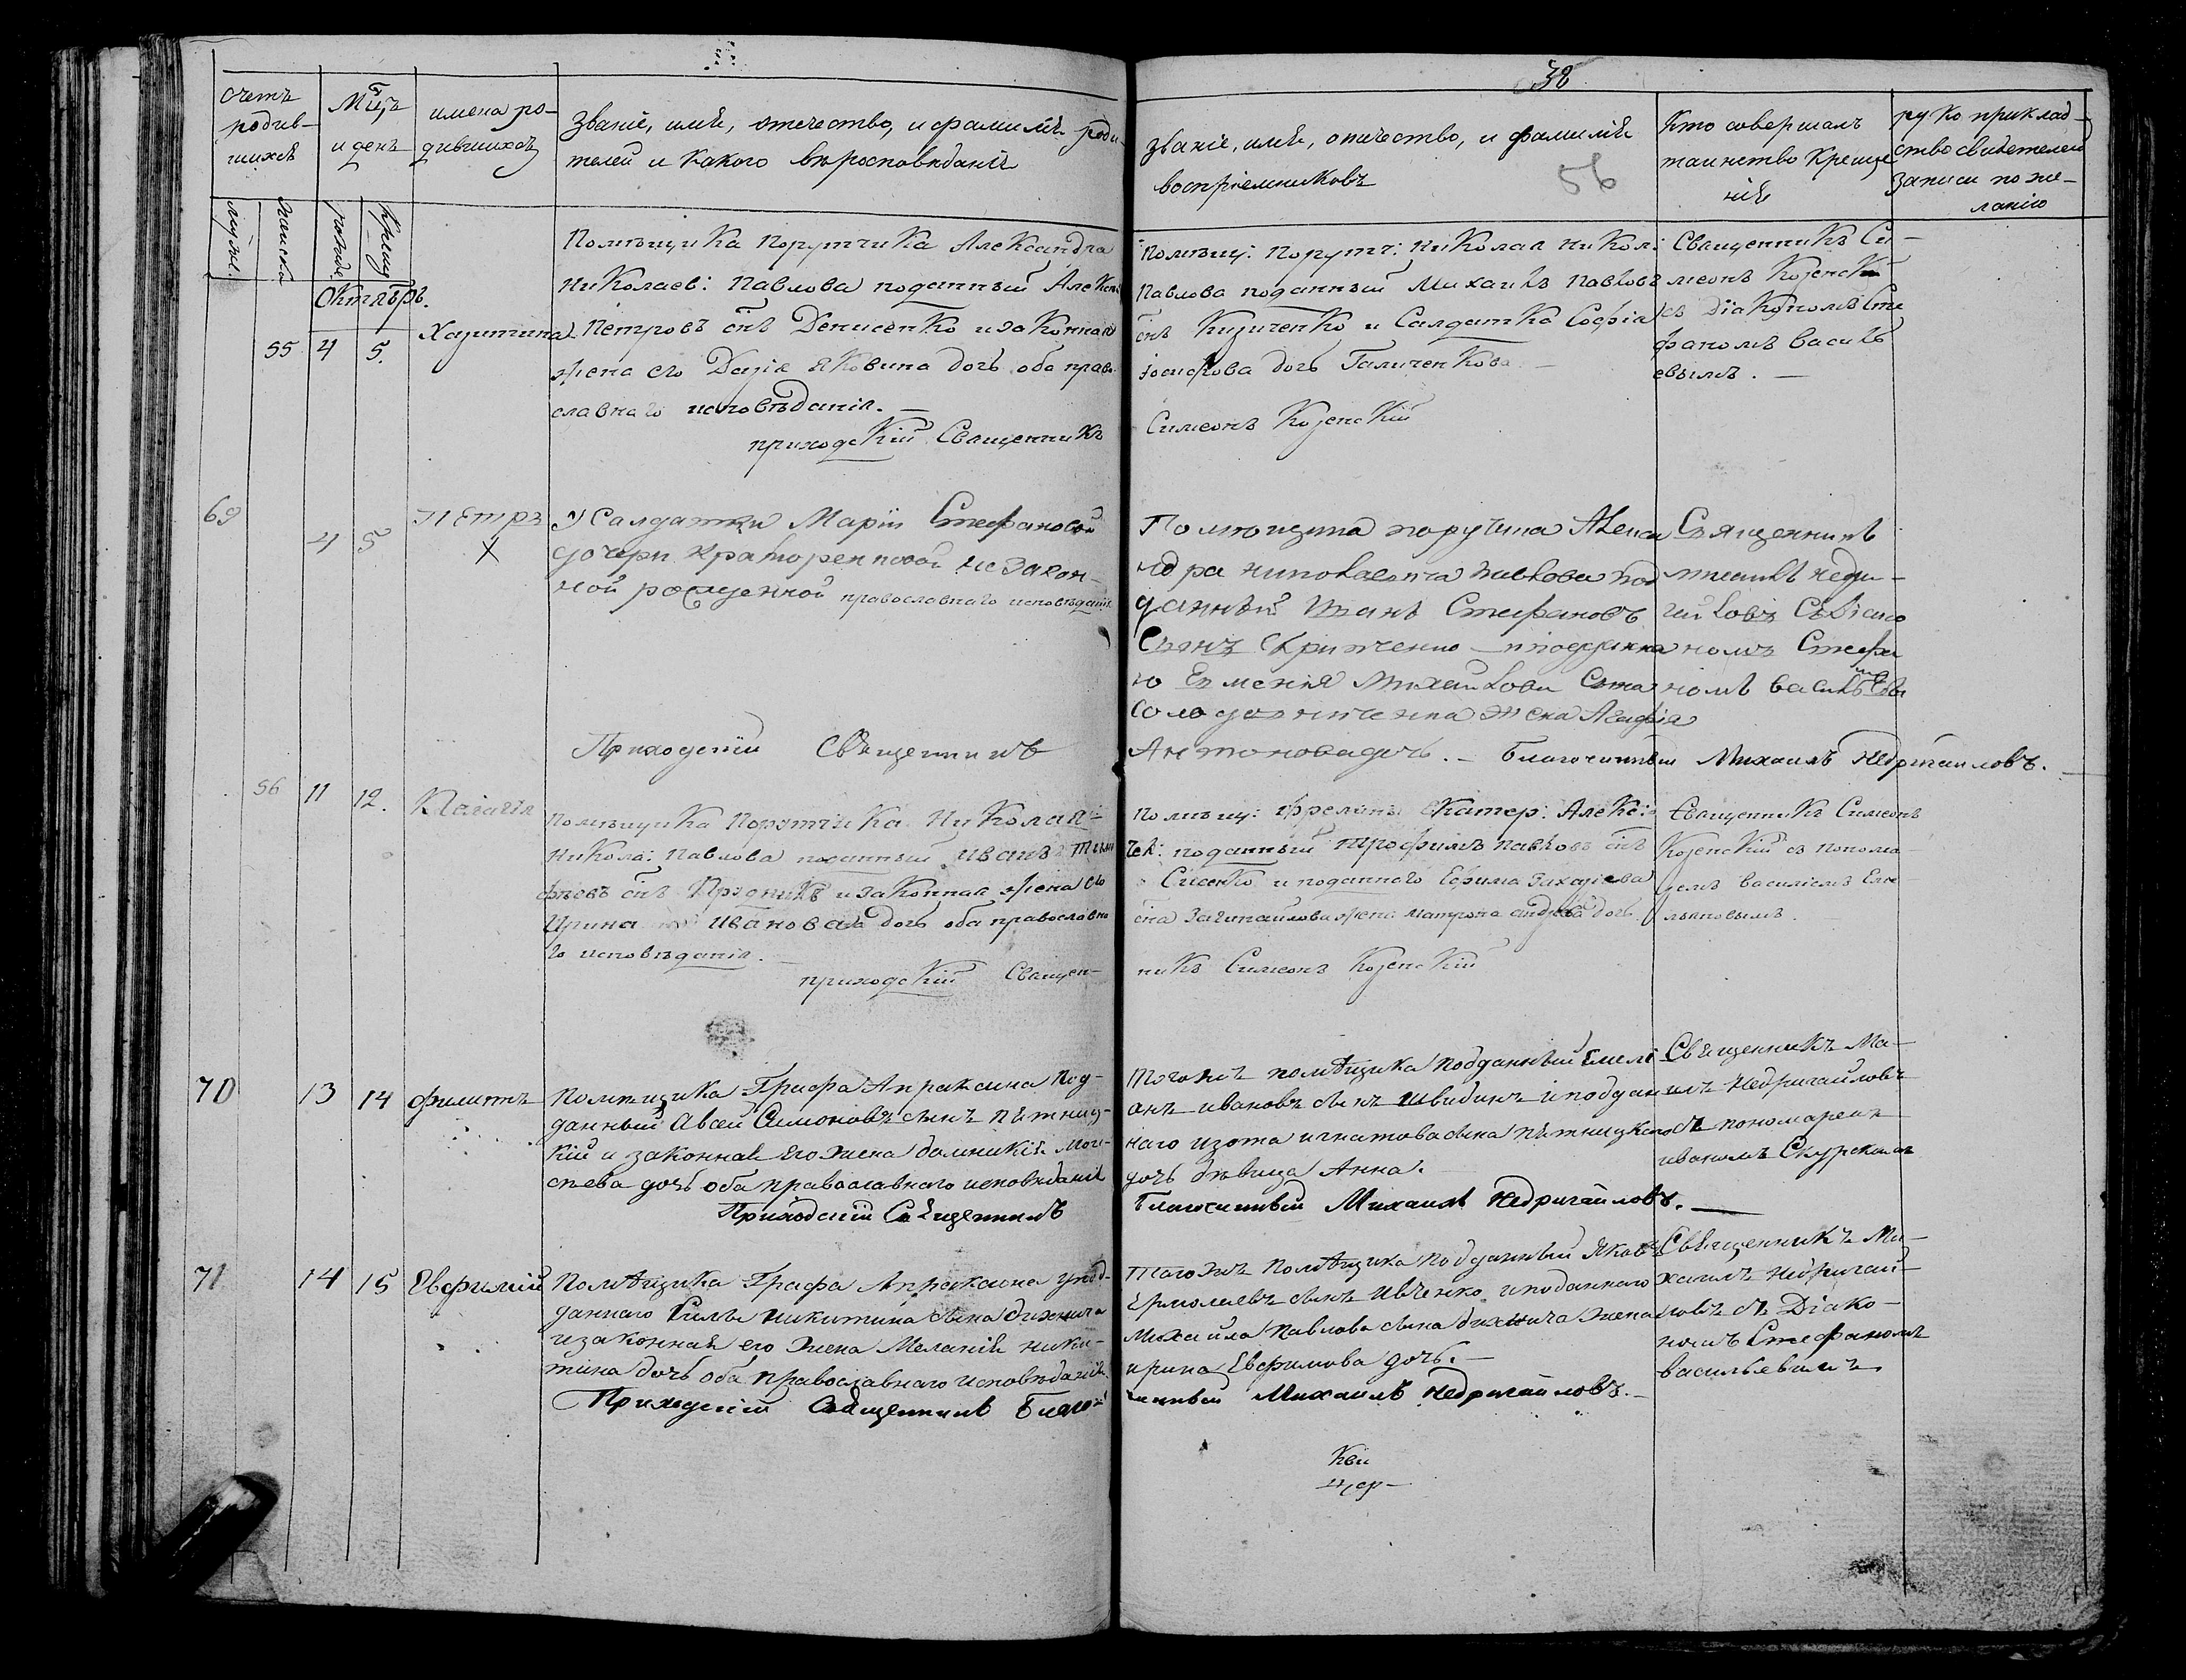 38
56
Счетъ родив-
шихся
Мцъ
и день
имена ро-
дившихся
Званіе, имя, отечество, и фамилія роди-
телей и какого вѣроисповѣданія
Званіе, имя, отчество, и фамилія
воспріемниковъ
Кто совершалъ
таинство Креще
нія
рукоприклад-
ство свидѣтелей
записи по же-
ланію
мужс.
женска
рожд.
крещ
Октябрь.
55 4 5.
Харитина
Помѣщика Порутчика Александра
Николаев: Павлова поданный Алексѣй
Петровъ снъ Денисенко и законная
жена его Дарія Яковина дочь оба право
славнаго исповѣданія. —
приходскій Священникъ
Помѣщ: Порутч: Николая Никол:
Павлова поданный Михаилъ Павловъ
снъ Кириченко и Салдатка Софія
Іосифова дочь Галиченкова. —
Симеонъ Козенскій
Священникъ Си-
меонъ Козенскій
съ Діакономъ Сте
фаномъ Василь
евымъ. —
69 4 5
Петръ
X
У Салдатки Маріи Стефановой
дочери Краморенковой незакон-
ной рожденной православнаго исповѣданія
Приходскій Священникъ
Помѣщика порутчика Алекса
ндра Николаевича Павлова под
данный Иванъ Стефановъ
Сынъ
Михайлова Сына
жена Агафія
Антонова дочь. — Благочинный Михаилъ Недригайловъ. —
Священникъ
Михаилъ Недри-
гайловъ Съ Діако
номъ Стефа
номъ Васильевы
56 11 12.
Пелагія
Помѣщика Порутчика Николая
Никола: Павлова поданный Иванъ Тимо
фѣевъ снъ Прудникъ и законная жена его
Ирина Иванова дочь оба православна
го исповѣданія. —
приходскій Священ-
Помѣщ: Фрелины Екатер: Алексѣ:
поданный Трофимъ Павловъ снъ
Сисенко, и поданного Ефима Захаріева
сна жена Матрона Андреева дочь.
никъ Симеонъ Козенскій
Священникъ Симеонъ
Козенскій съ понома
ремъ Василіемъ Еме
льяновымъ.
70 13 14
Филиппъ
Помѣщика Графа Апраксина Под-
данный Авсей Симоновъ сынъ Пятниц-
кій и законная его жена Домникія Мои-
сеева дочь оба православнаго исповѣданія
Приходскій Священникъ
Того жъ помѣщика подданный Емелі
анъ Ивановъ сынъ Швидинъ и поддан
наго Изота Игнатова сына Пятницкаго
дочь дѣвица Анна.
Благочинный Михаилъ Недригайловъ. —
Священникъ Ма-
илъ Недригайловъ
съ пономаремъ
Иваномъ Скурскимъ
71 14 15
Евфимій
Помѣщика Графа Апраксина у под-
даннаго Силы Никитина сына Дихнича
и законная его жена Меланія Ники-
тина дочь оба православнаго исповѣданія.
Приходскій Священникъ Благо-
Того жъ Помѣщика подданный Яковъ
Ермолаевъ сынъ Ивченко, и поданнаго
Михаила Павлова сына Дихнича жена
Ирина Евфимова дочь. —
чинный Михаилъ Недригайловъ. —
Священникъ Ми-
хаилъ Недригай-
ловъ съ Діако-
номъ Стефаномъ
Васильевымъ